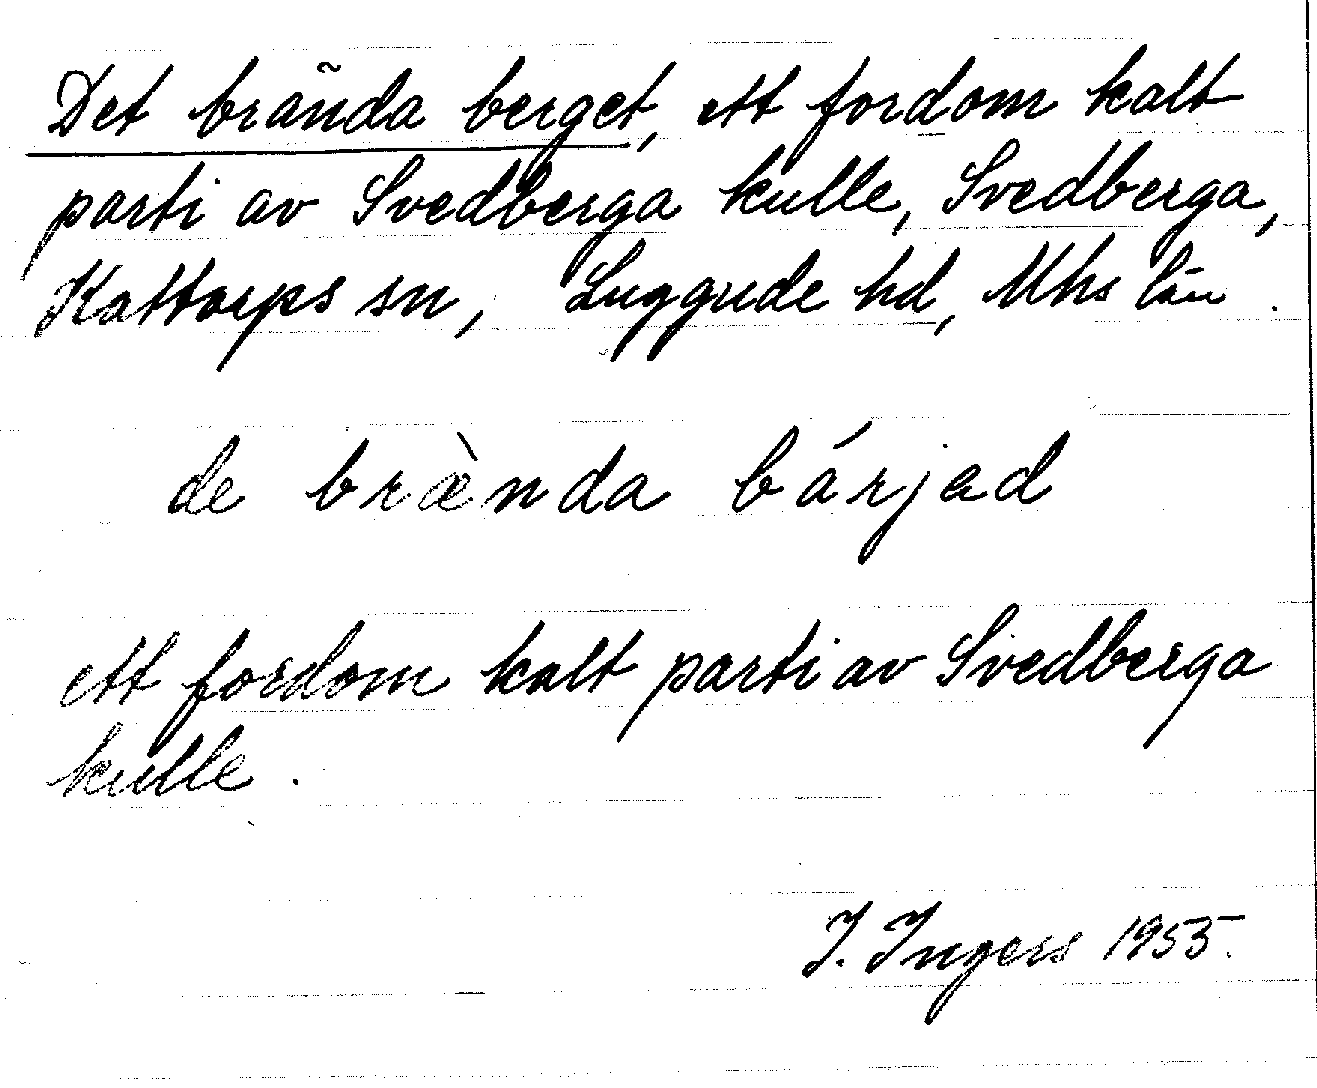 Det brända berget, ett fordom kalt
parti av Svedberga kulle, Svedberga,
Kattarps sn, Luggude hd, Mhs län.
de bræ̀nda bárjad
ett fordom kalt parti av Svedberga
kulle.
I. Ingers 1955.